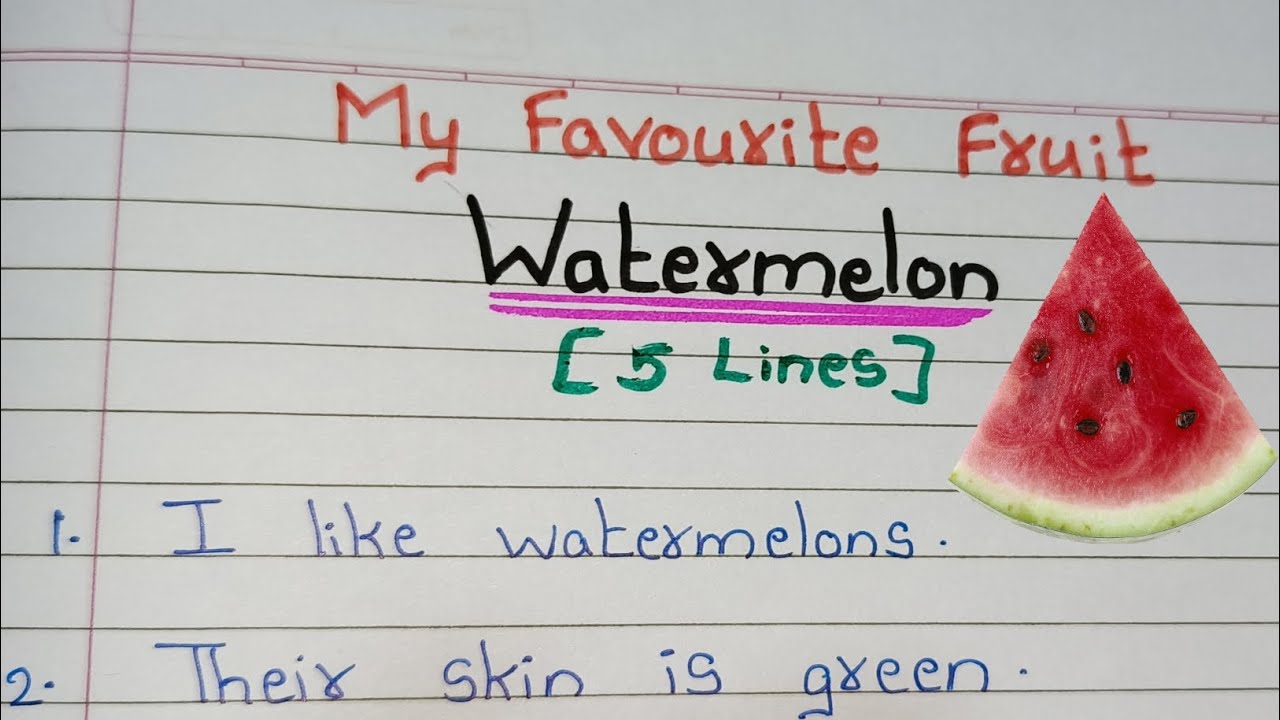 My Favourite Fruit
Watermelon
[5 Lines]
1. I like watermelons.
2. Their skin is green.